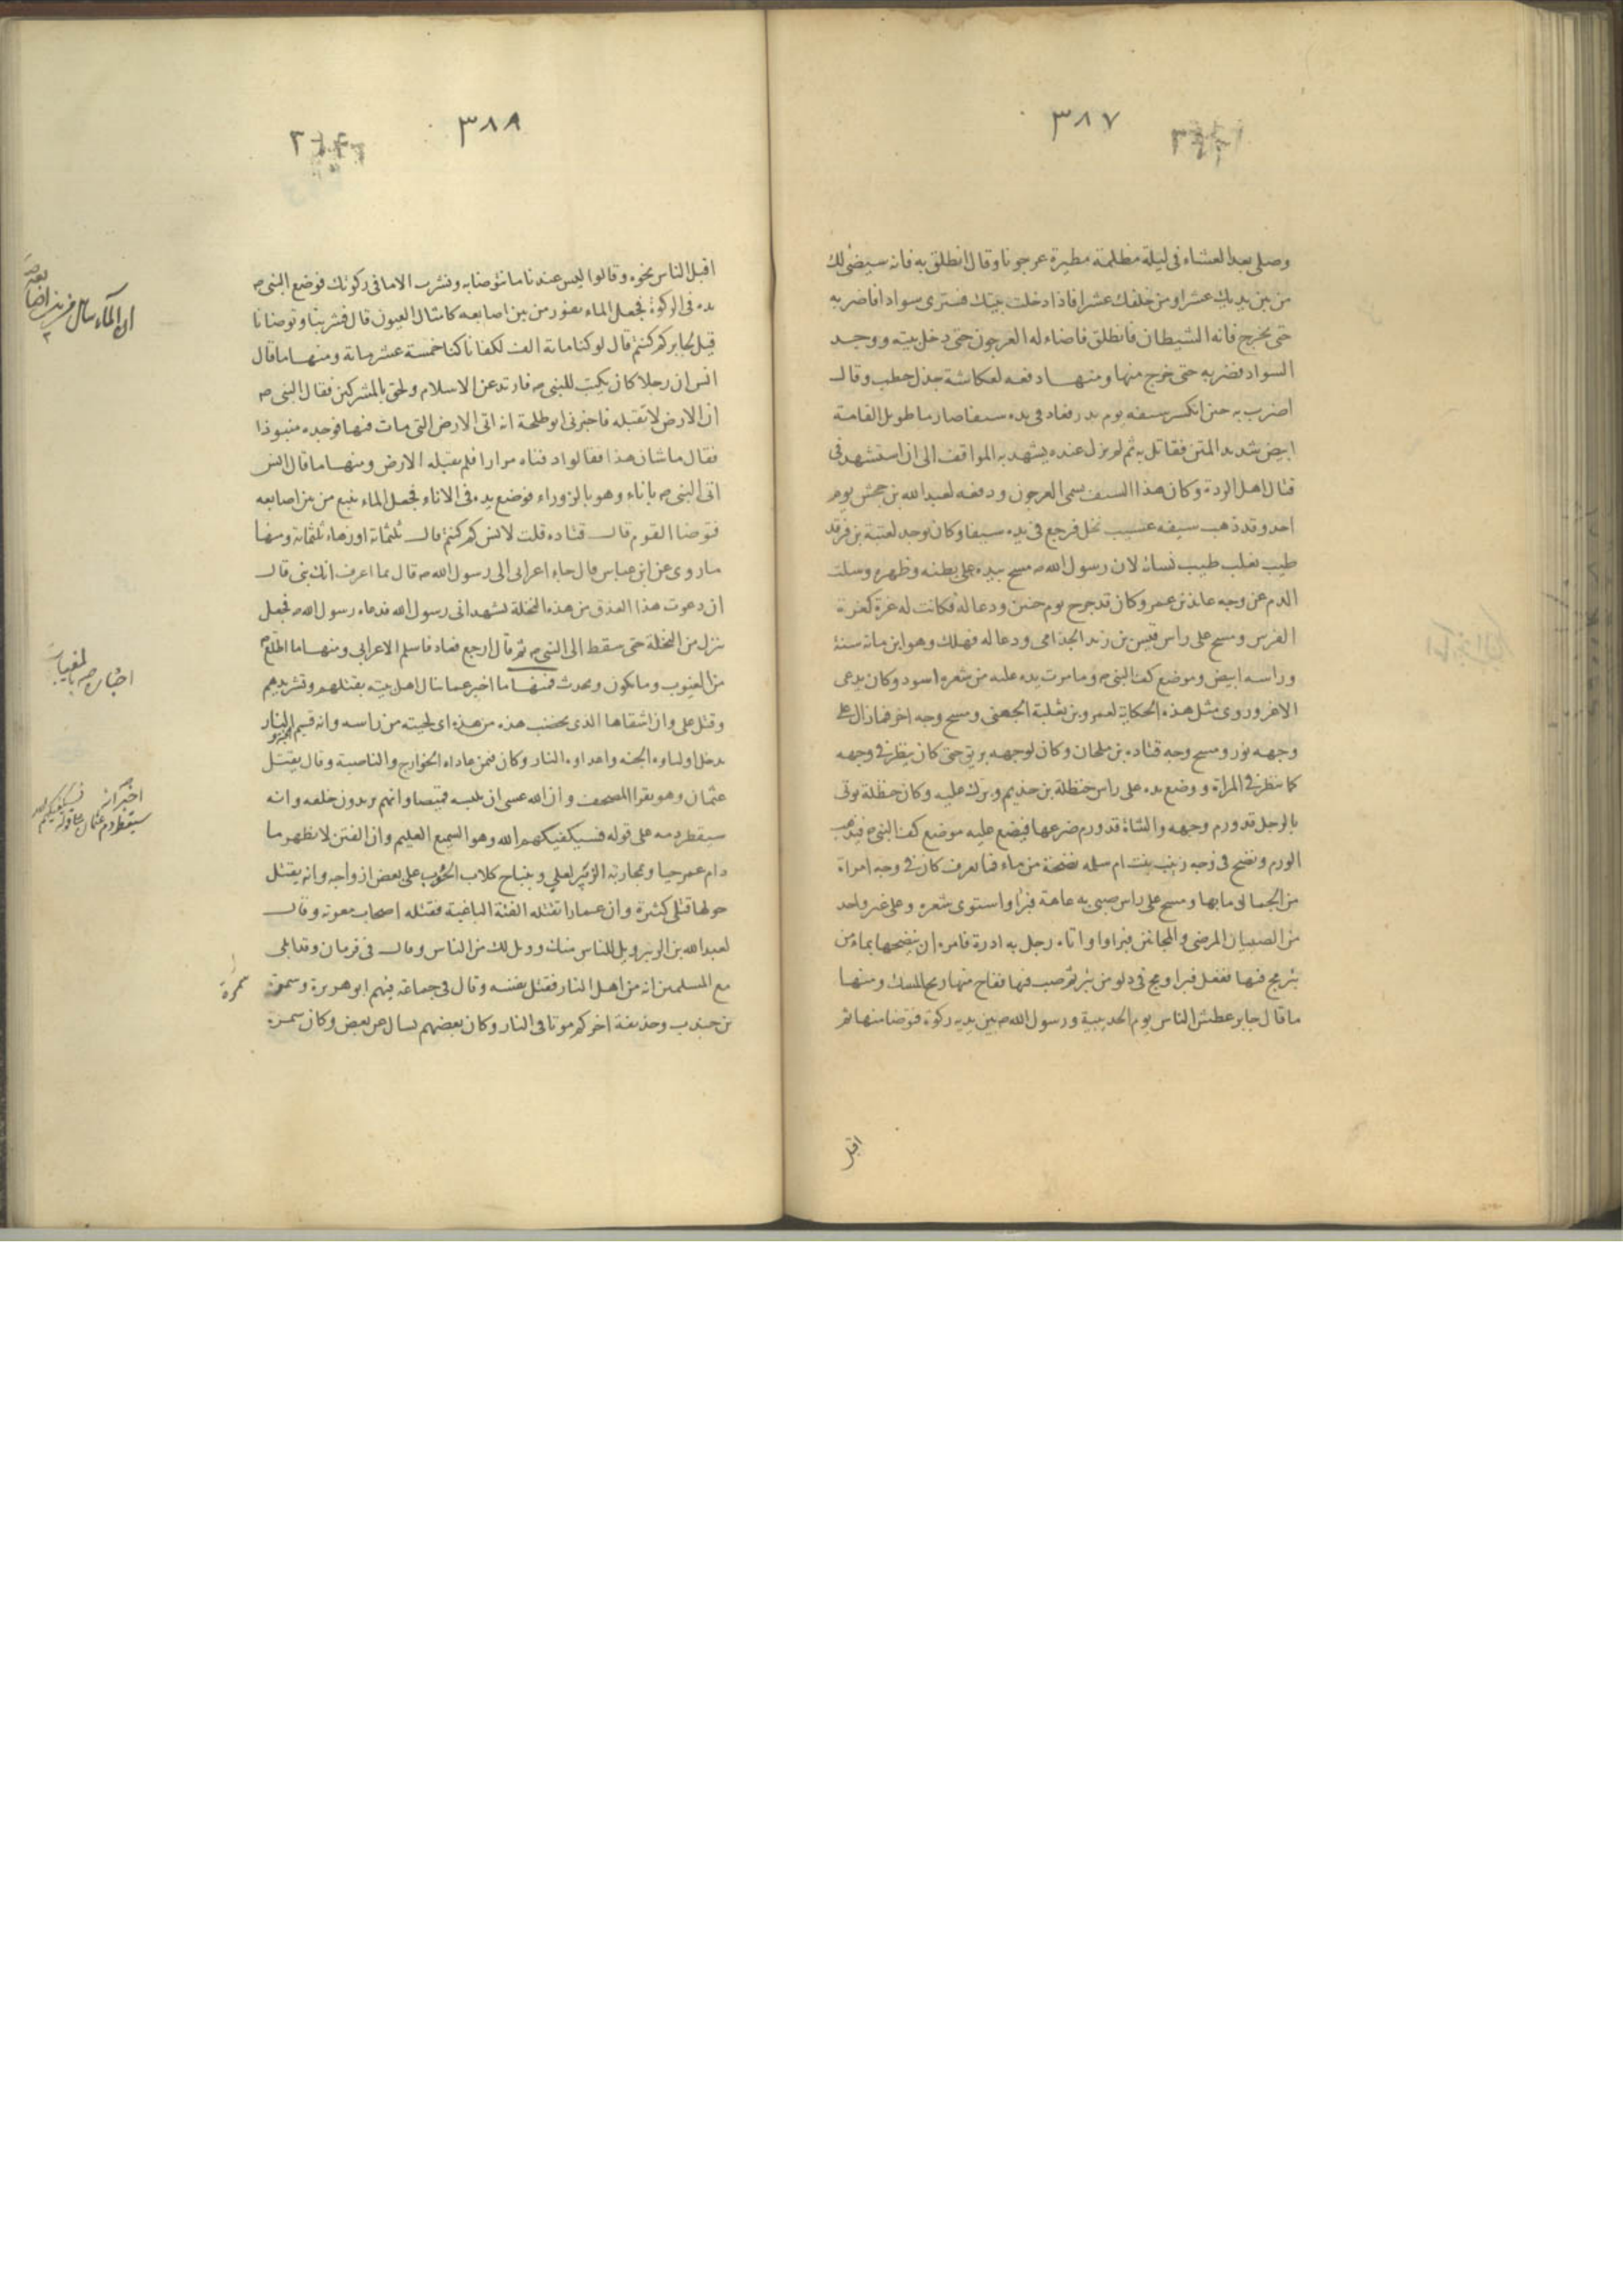 ٣٨٧
وصلى بعد العشاء فى ليلة مظلمة مطيرة عرجونا وقال انطلق به فانه سيضئ لك
من بين يديك عشرا ومن خلفك عشرا فاذا دخلت بيتك فسترى سوادا فاضربه
حتى يخرج فانه الشيطان فانطلق فاضاء له العرجون حتى دخل بيته ووجد
السواد فضربه حتى خرج منها ومنها دفعه لعكاشة جذل حطب وقال
اضرب به حين انكسر سيفه يوم بدر فعاد فى يده سيفا صارما طويل القامة
ابيض شديد المتن فقاتل به ثم لم يزل عنده يشهد به المواقف الى ان استشهد فى
قتال اهل الردة وكان هذا السيف يسمى العرجون ودفعه لعبد الله بن جحش يوم
احد وقد ذهب سيفه عسيب نخل فرجع فى يده سيفا وكان يوجد لعتبة بن فرقد
طيب يغلب طيب نسائه لان رسول الله ص مسح بيده على بطنه وظهره وسلت
الدم عن وجه عائذ بن عمرو كان قد جرح يوم حنين ودعا له فكانت له غرة كغرة
الفرس ومسح على راس قيس بن زيد الجذامى ودعا له فهلك وهو ابن مائة سنة
وراسه ابيض وموضع كف النبى ص وما مرت يده عليه من شعره اسود وكان يدعى
الاغر وروى مثل هذه الحكاية لعمرو بن ثعلبة الجهنى ومسح وجه اخر فما زال على
وجهه نور ومسح وجه قتاده بن ملحان وكان لوجهه بريق حتى كان ينظر فى وجهه
كما ينظر فى المراة ووضع يده على راس حنظلة بن حذيم وبرك عليه وكان حنظلة يوتى
بالرجل قد ورم وجهه والشاة قد ورم ضرعها فيضع عليه موضع كف النبى ص فيذهب
الورم ونضح فى وجه زينب بنت ام سلمه نضحة من ماء فما يعرف كان فى وجه امراة
من الجمال ما بها ومسح على راس صبى به عاهة فبرا واستوى شعره وعلى غير واحد
من الصبيان المرضى والمجانين فبراوا واتاه رجل به ادرة فامره ان ينضحها بماء من
بئر مج فيها ففعل فبرا ومج فى دلو من بئر ثم صب فيها ففاح منها ريح المسك ومنها
ما قال جابر عطش الناس يوم الحديبية ورسول الله ص بين يديه ركوة فتوضا منها ثم
اقبل
٣٨٨
اقبل الناس نحوه وقالوا ليس عندنا ما نتوضا به ونشرب الا ما فى ركوتك فوضع النبى ص
يده فى الركوة فجعل الماء يفور من بين اصابعه كامثال العيون قال فشربنا وتوضانا
قيل لجابر كم كنتم قال لو كنا مائة الف لكفانا كنا خمسة عشر مائة ومنها ما قال
انس ان رجلا كان يكتب للنبى ص فارتد عن الاسلام ولحق بالمشركين فقال النبى ص
ان الارض لا تقبله فاخبرنى ابو طلحة انه اتى الارض التى مات فيها فوجده منبوذا
فقال ما شان هذا فقالوا دفناه مرارا فلم تقبله الارض ومنها ما قال انس
اتى النبى ص باناء وهو بالزوراء فوضع يده فى الاناء فجعل الماء ينبع من بين اصابعه
فتوضا القوم قال قتاده قلت لانس كم كنتم قال ثلثمائة او زهاء ثلثمائة ومنها
ما روى عن ابن عباس قال جاء اعرابى الى رسول الله ص قال بما اعرف انك نبى قال
ان دعوت هذا العذق من هذه النخلة تشهد انى رسول الله فدعاه رسول الله ص فجعل
ينزل من النخلة حتى سقط الى النبى ص ثم قال ارجع فعاد فاسلم الاعرابى ومنها ما اطلع
من الغيوب وما يكون ويحدث فمنها ما اخبر عما ينال اهل بيته بقتلهم وتشريدهم
وقتل على وان اشقاها الذى يخضب هذه من هذه اى لحيته من راسه وانه قسيم النار
يدخل اولياوه الجنه واعداوه النار وكان فيمن عاداه الخوارج والناصبة وقال يقتل
عثمان وهو يقرا المصحف وان الله عسى ان يلبسه قميصا وانهم يريدون خلعه وانه
سيقطر دمه على قوله فسيكفيكهم الله وهو السميع العليم وان الفتن لا تظهر ما
دام عمر حيا ومحاربة الزبير لعلي وبنباح كلاب الحوب على بعض ازواجه وانه يقتل
حولها قتلى كثيرة وان عمارا تقتله الفئة الباغية فقتله اصحاب معوية وقال
لعبد الله بن الزبير ويل للناس منك وويل لك من الناس وقال فى قزمان وقد ابلى
مع المسلمين انه من اهل النار فقتل نفسه وقال فى جماعة فيهم ابو هريرة وسمرة
بن جندب وحذيفة اخركم موتا فى النار وكان بعضهم يسال عن بعض وكان سمرة
اخباره ص بالمغيبات
اخبر انه
سيقطر دم عثمان على قوله فسيكفيكهم الله
سمرة